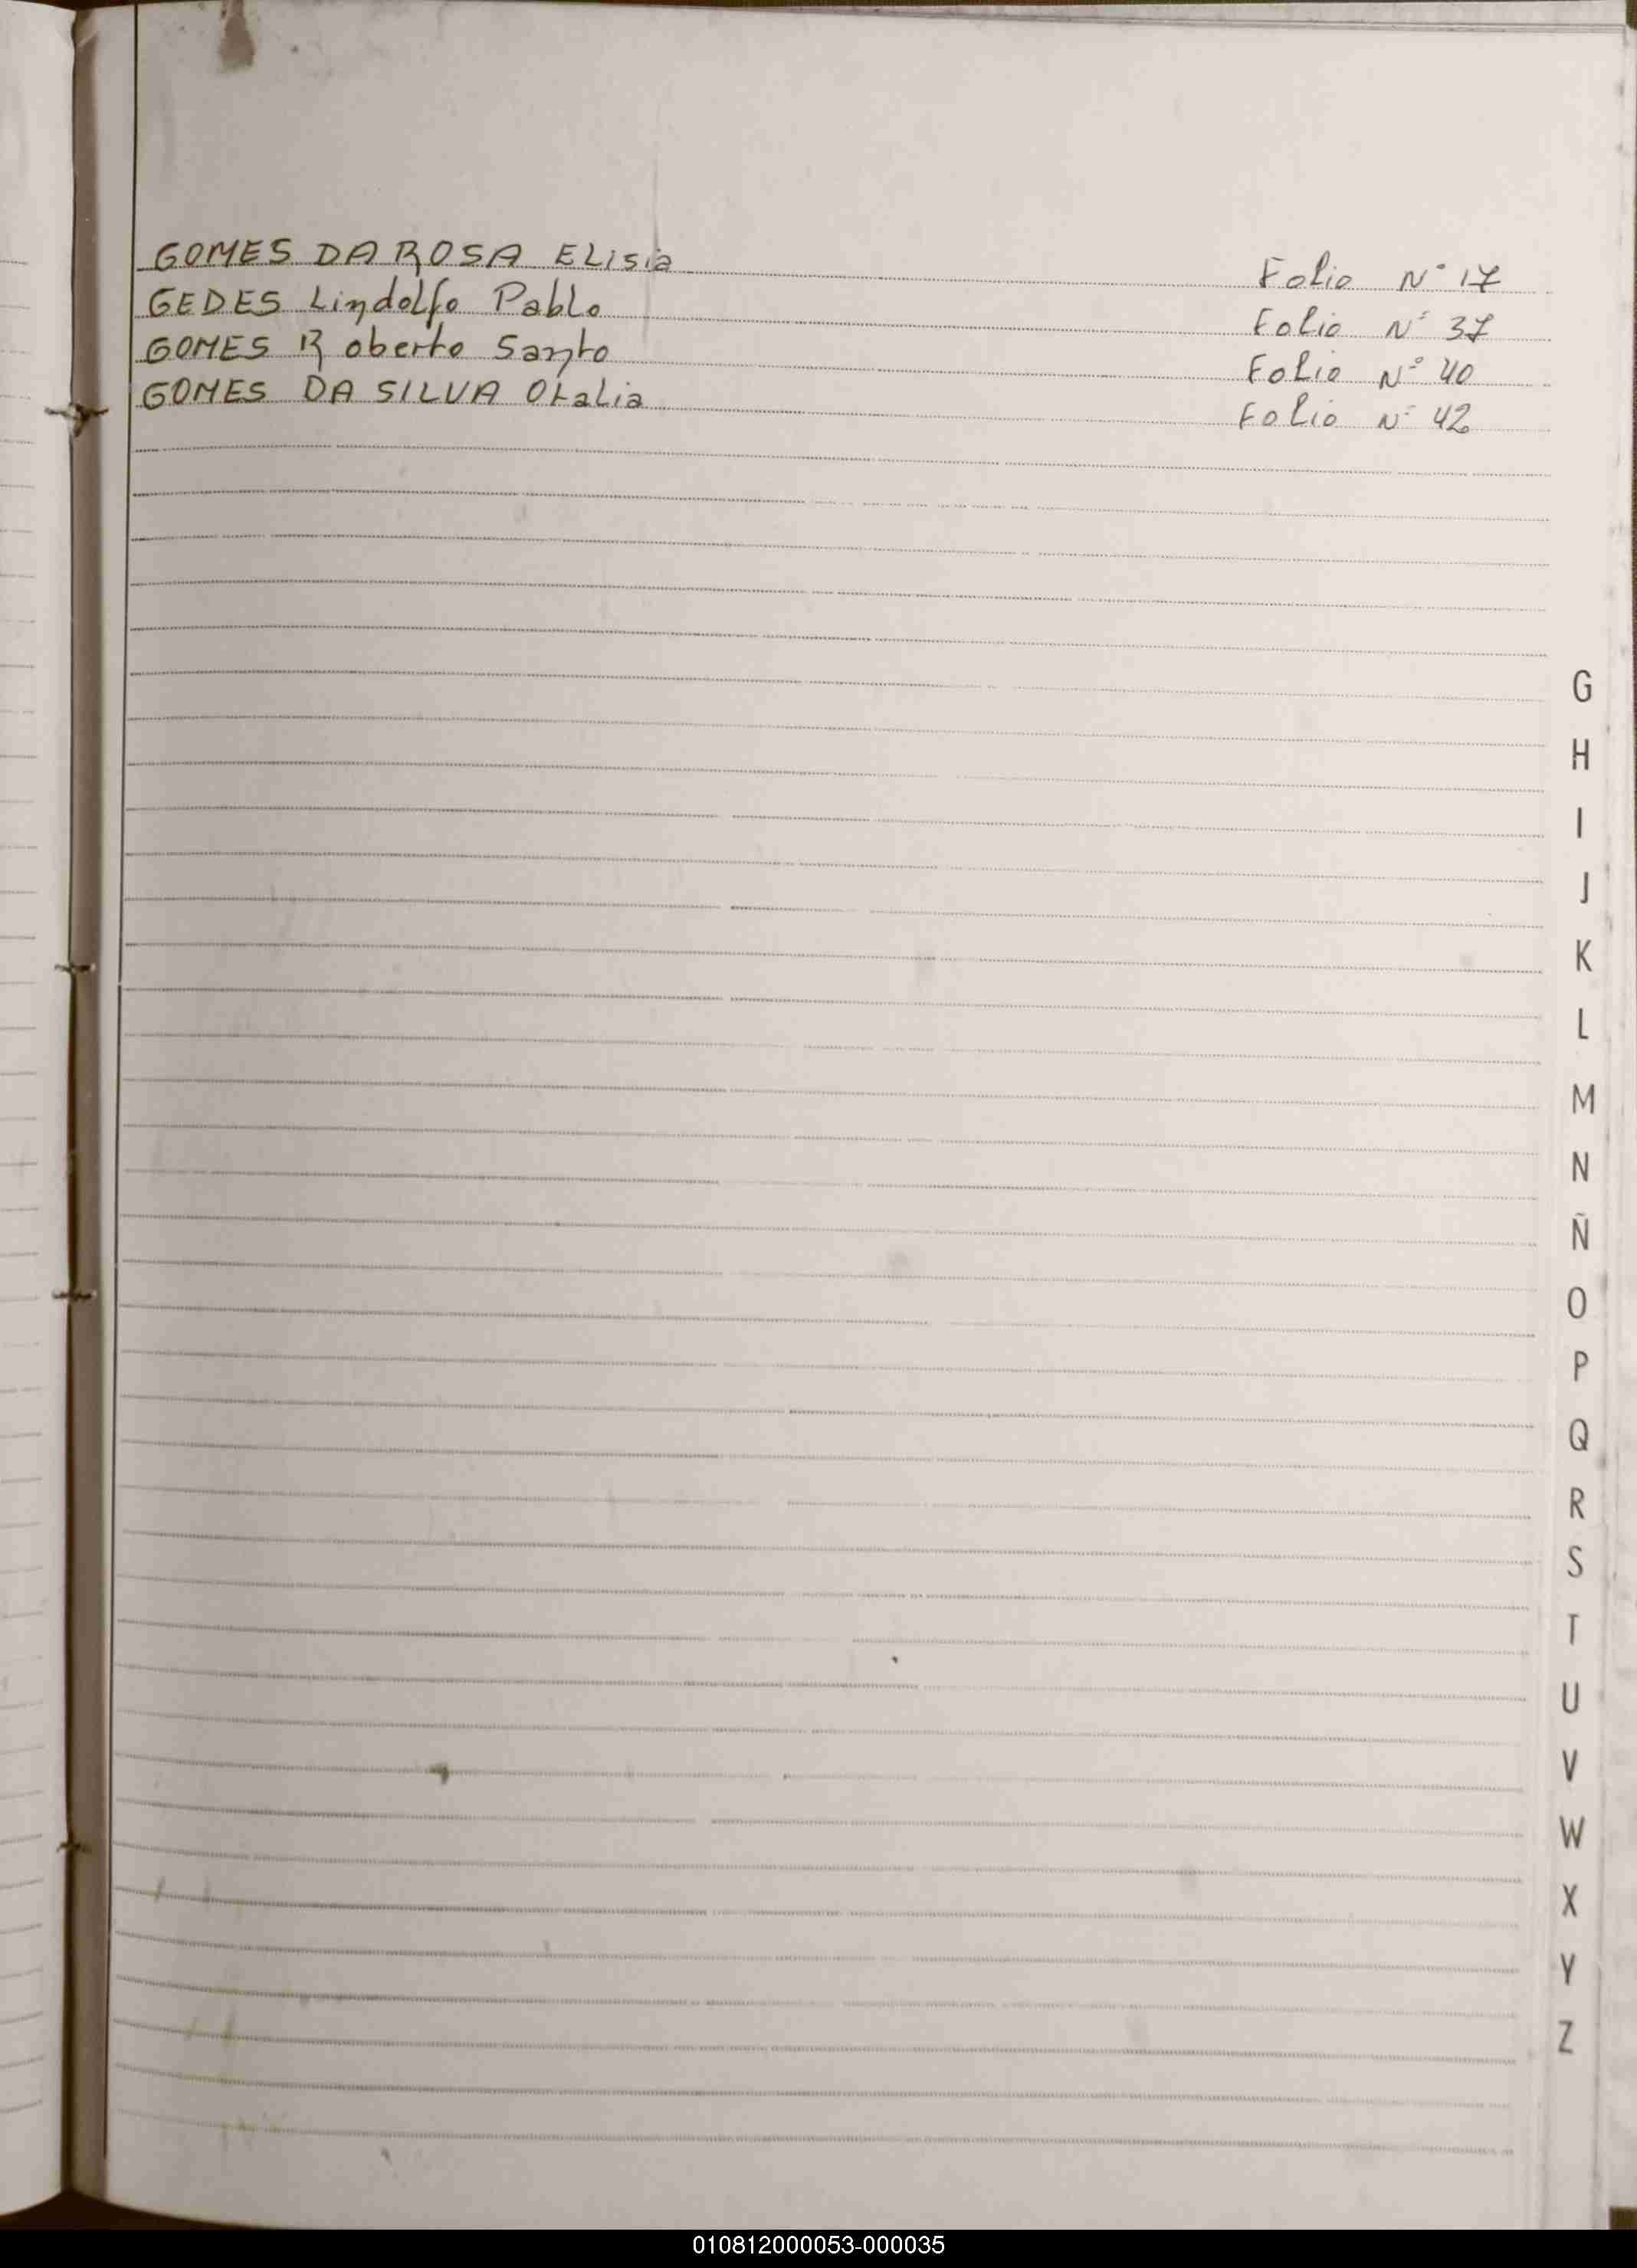 GOMES DA ROSA ELisia Folio N° 17
GEDES Lindolfo Pablo Folio N° 37
GOMES Roberto Santo Folio N° 40
GOMES DA SILVA Otalia Folio N° 42
G
H
I
J
K
L
M
N
Ñ
O
P
Q
R
S
T
U
V
W
X
Y
Z
010812000053-000035